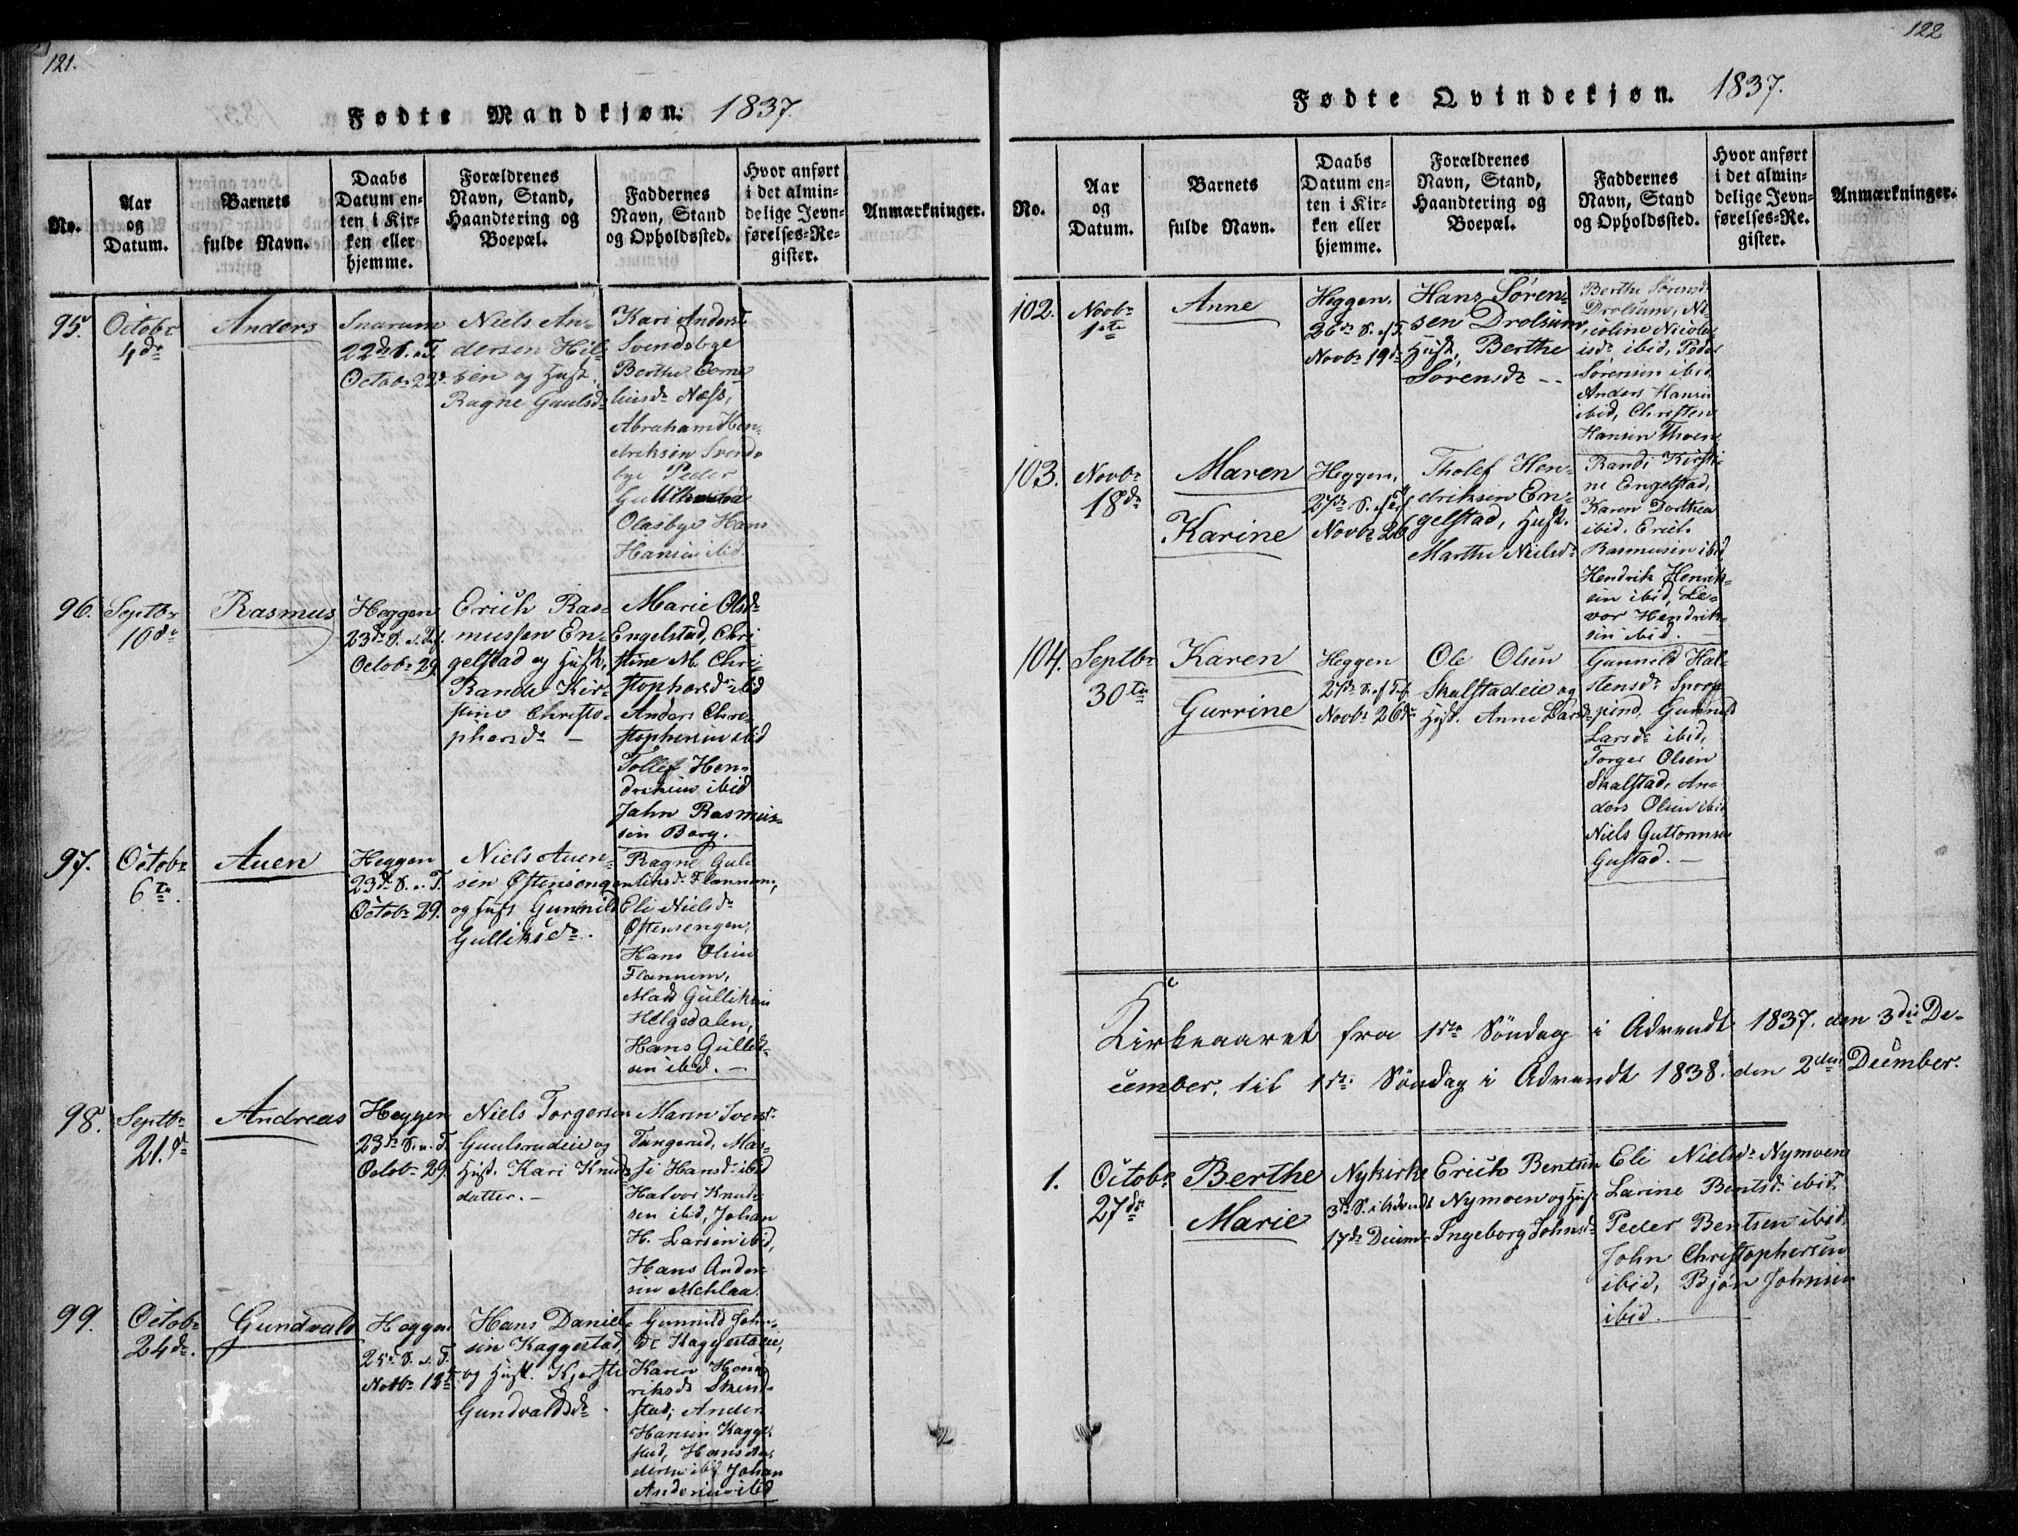 121.
Fødte Mandkjøn. 1837.
No.
Aar
og
Datum.
Barnets
fulde Navn.
Daabs
Datum en-
ten i Kir-
ken eller
hjemme.
Forældrenes
Navn, Stand,
Haandtering og
Boepæl.
Faddernes
Navn, Stand
og Opholdssted.
Hvor anført
i det almin-
delige Jevn-
førelses-Re-
gister.
Anmærkninger.
95.
Octobr
4de
Anders
Snarum
22de S. e. T.
Octobr 22de
Niels An-
dersen Hil-
sen og Hust.
Ragne Guulsdr
Kari Andersdr
Svendsbye
Berthe Corne-
liusdr Næss,
Abraham Hen-
driksen Svends-
bye Peder
Olasbye Hans
Hansen ibid.
96.
Septbr
10de
Rasmus
Heggen
23de S. e. Tref.
Octobr 29.
Erich Ras-
mussen En-
gelstad og Hust.
Rande Kir-
stine Christo-
phersdr —
Marie Olsdr
Engelstad, Chri-
stine M. Chri-
stophersdr ibid
Anders Chri-
stophersen ibid
Tollef Hen-
driksen ibid
Jahn Rasmus-
sen Berg. —
97.
Octobr
6te
Auen
Heggen
23de S. e. T.
Octobr 29.
Niels Auen-
sen Øftensengen
og Hust Gunnild
Gulliksdr.
Ragne Gul-
liksdr Flannum,
Eli Nielsdr
Øftensengen,
Hans Olsen
Flannum,
Mads Gulliksen
Helgedalen,
Hans Gullik-
sen ibid. —
98.
Septbr
21de
Andreas
Heggen
23de S. e. T.
Octobr 29.
Niels Torgersen
Guulsrudeie og
Hust. Kari Knuds-
datter. —
Maren Iversdr
Tangerud, Mar-
Hansdr ibid
Halvor Knud-
sen ibid, Johan
H. Larsen ibid,
Hans Ander-
sen Mehlaa.
99.
Octobr
24de.
Gundvald
Heggen
25de S. e. T.
Novbr 12te
Hans Daniel-
sen Kaggestad,
og Hust. Kjersti
Gundvaldsdr
Gunnild John-
dr Kaggestadeie,
Karen Hend-
riksdr Skind-
stad, Anders
Hansen Kagge-
stad, Hans An-
dersen ibid Johan
Andersen ibid
122
Fødte Qvindekjøn. 1837.
No.
Aar
og
Datum.
Barnets
fulde Navn.
Daabs
Datum en-
ten i Kir-
ken eller
hjemme.
Forældrenes
Navn, Stand,
Haandtering og
Boepæl.
Faddernes
Navn, Stand
og Opholdssted.
Hvor anført
i det almin-
delige Jevn-
førelses-Re-
gister.
Anmærkninger.
102.
Novbr
1ste
Anne
Heggen,
26de S. ef T.
Novbr 19de
Hans Søren-
sen Drolsum,
Hust. Berthe
Sørensdr --
Berthe Sørensdr
Drolsum, Ni-
coline Nicola-
isdr ibid, Peder
Sørensen ibid
Anders Hansen
ibid, Christen
Hansen Thoen
103.
Novbr
18de
Maren
Karine
Heggen,
27de S. ef Tref
Novbr 26
Tholef Hen-
driksen En-
gelstad, Hust.
Marthe Nielsdr
Randi Kirsti-
ne Engelstad,
Karen Dorthea
ibid. Erich
Rasmussen ibid
Hendrik Henrik-
sen ibid, Le-
vor Hendrik-
sen ibid. —
104.
Septbr
30te
Karen
Gurrine
Heggen
27de S. ef Tref.
Novbr 26de
Ole Olsen
Skalstadeie og
Hust. Anne Larsdr
Gunnild Hal-
stensdr Spone-
pind, Gunnild
Larsdr ibid,
Torger Olsen
Skalstad, An-
ders Olsen ibid
Niels Guttormsen
Gustad. —
Kirkeaaret fra 1ste Søndag i Advendt 1837. den 3die De-
cember, til 1ste Søndag i Advendt 1838. den 2den December.
1.
Octobr
27de
Berthe
Marie
Nykirke
3de S. i Advendt
17de Decembr
Erich Bentsen
Nymoen og Hust
Ingeborg Johnsdr
Eli Nielsdr Nymoen
Larine Bentsdr ibid,
Peder Bentsen ibid,
John Christophersen
ibid, Bjørn Johnsen
ibid.